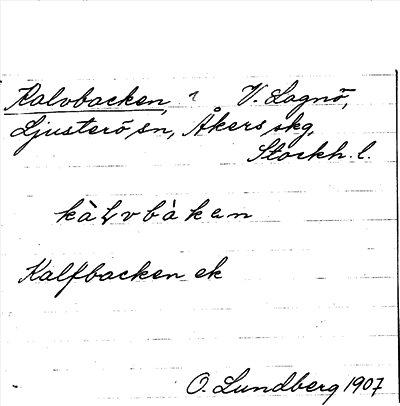 Kalvbacken, i V. Lagnö,
Ljusterö sn, Åkers skg,
Stockh. l.
kàlvbàken
Kalfbacken ek
O. Lundberg 1907